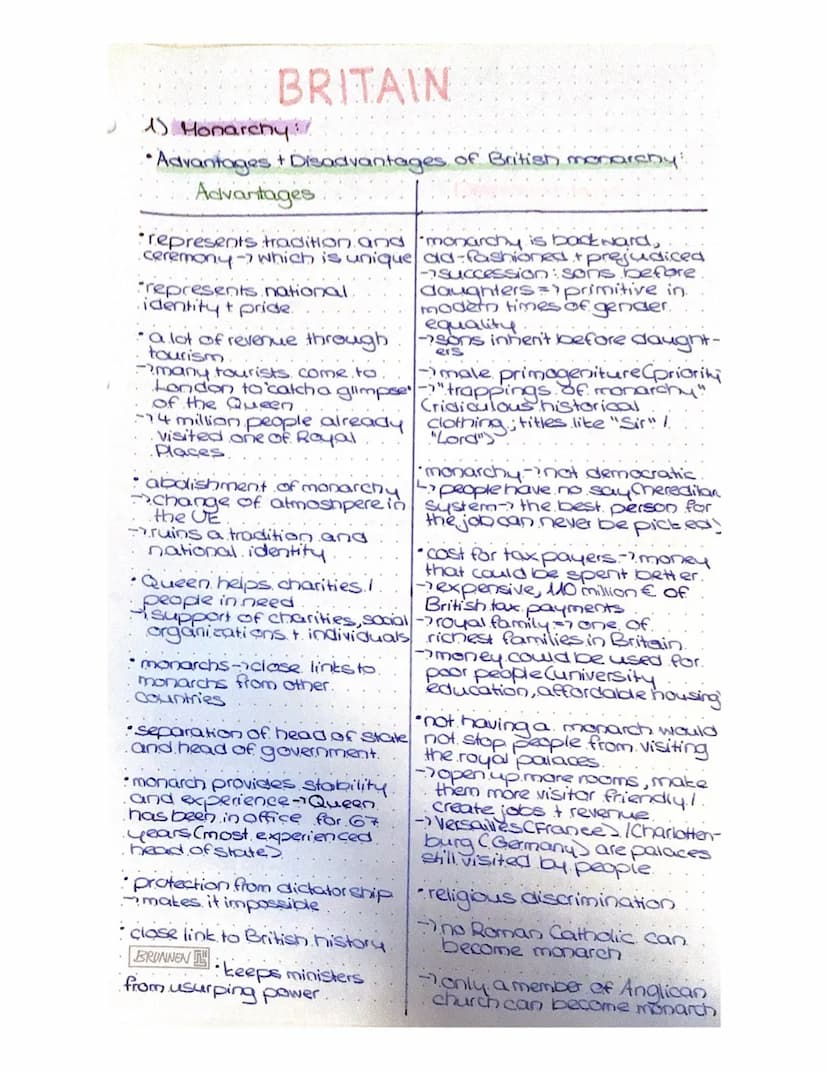 BRITAIN
1) Monarchy:
• Advantages + Disadvantages of British monarchy:
Advantages
• represents tradition and
ceremony → which is unique
• represents national
identity + pride
• a lot of revenue through
tourism
→ many tourists come to
London to "catch a glimpse"
of the Queen
→ 14 million people already
visited one of Royal
Places
• abolishment of monarchy
→ change of atmoshpere in
the UE
→ ruins a tradition and
national identity
• Queen helps charities /
people in need
→ support of charities, social
organizations + individuals
• monarchs → close links to
monarchs from other
countries
• separation of head of state
and head of government
• monarch provides stability
and experience → Queen
has been in office for 67
years (most experienced
head of state)
• protection from dictatorship
→ makes it impossible
• close link to British history
BRUNNEN
• keeps ministers
from usurping power
• monarchy is backward,
old-fashioned + prejudiced
→ succession: sons before
daughters => primitive in
modern times of gender
equality
→ sons inherit before daught-
ers
→ male primogeniture (priority
→ "trappings of monarchy"
(ridiculous historical
clothing; titles like "Sir" /
"Lord")
• monarchy → not democratic
↳ people have no say (hereditary
system → the best person for
the job can never be picked)
• cost for tax payers → money
that could be spent better
→ expensive, 110 million € of
British tax payments
→ royal family => one of
richest families in Britain
→ money could be used for
poor people (university
education, affordable housing
• not having a monarch would
not stop people from visiting
the royal palaces
→ open up more rooms, make
them more visitor friendly /
create jobs + revenue
→ Versailles (France) / Charlotten-
burg (Germany) are palaces
still visited by people
• religious discrimination
→ no Roman Catholic can
become monarch
→ only a member of Anglican
church can become monarch